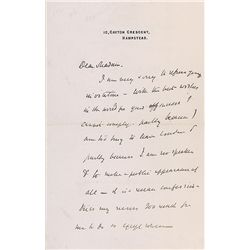 10, CROFTON CRESCENT,
HAMPSTEAD.
Dear Madam.
I am very sorry to refuse your
invitation - with the best wishes
in the world for your success I
cannot comply. partly because I
am too busy to leave London &
partly because I am no speaker
& to make a public appearance at
all - it is mean confession
tries my nerves too much for
me to do it